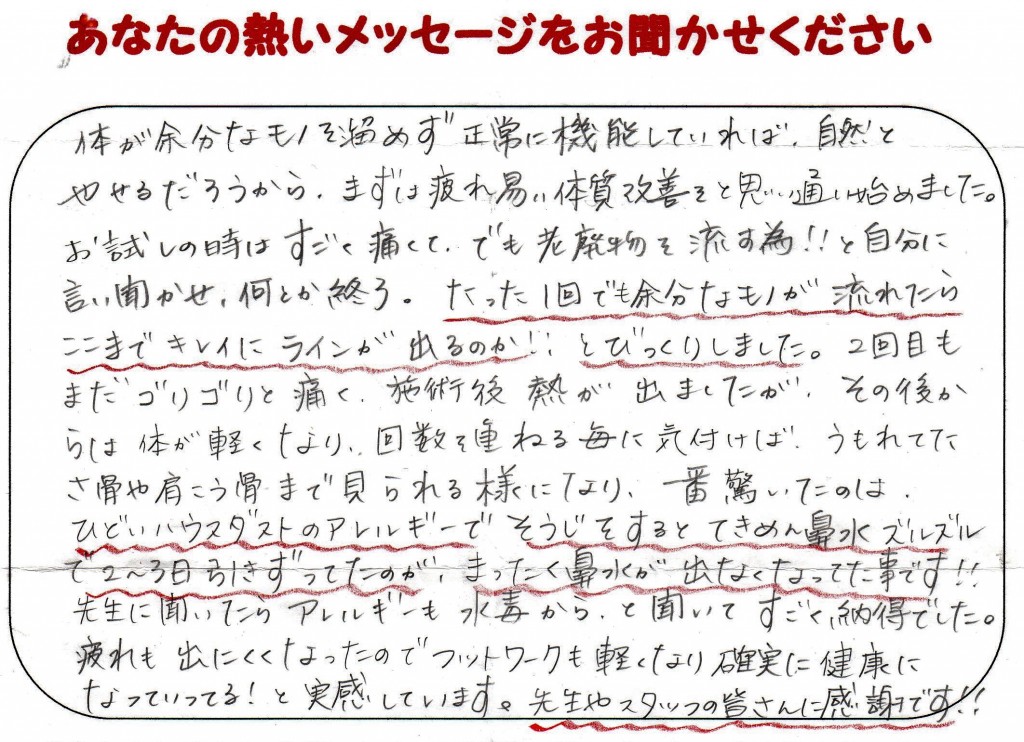 あなたの熱いメッセージをお聞かせください
体が余分なモノを溜めず正常に機能していれば、自然と
やせるだろうから、まずは疲れ易い体質改善をと思い通い始めました。
お試しの時はすごく痛くて、でも老廃物を流す為!!と自分に
言い聞かせ、何とか終ろ。たった1回でも余分なモノが流れたら
ここまでキレイにラインが出るのか!!とびっくりしました。2回目も
まだゴリゴリと痛く、施術後熱が出ましたが、その後か
らは体が軽くなり、回数を重ねる毎に気付けば、うもれてた
さ骨や肩こう骨まで見られる様になり、一番驚いたのは、
ひどいハウスダストのアレルギーでそうじをするとてきめん鼻水ズルズル
で2〜3日引きずってたのが、まったく鼻水が出なくなってた事です!!
先生に聞いたらアレルギーも水毒から、と聞いてすごく納得でした。
疲れも出にくくなったのでフットワークも軽くなり確実に健康に
なっていってる!と実感しています。先生やスタッフの皆さんに感謝です!!